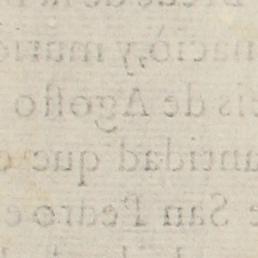 nació, y murio
eis de Agoſto
antidad que c
e San Pedro e